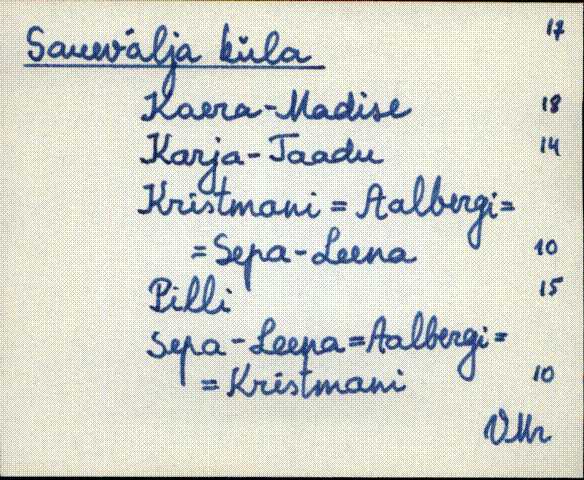 Sauevälja küla 17
Kaera-Madise 18
Karja-Jaadu 14
Kristmani = Aalbergi =
= Sepa-Leena 10
Pilli 15
Sepa-Leena = Aalbergi =
= Kristmani 10
VMr